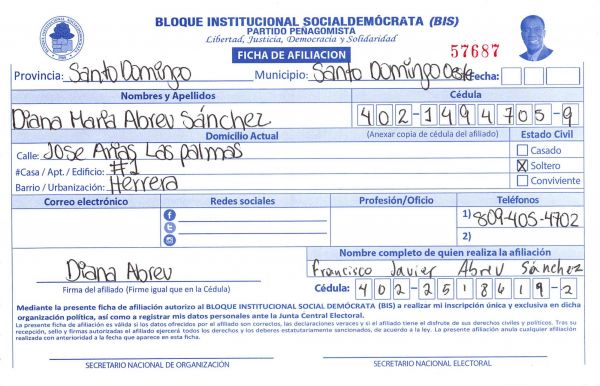 BLOQUE INSTITUCIONAL SOCIALDEMÓCRATA (BIS)
PARTIDO PEÑAGOMISTA
Libertad, Justicia, Democracia y Solidaridad
FICHA DE AFILIACION
57687
Provincia: Santo Domingo Municipio: Santo Domingo Oeste Fecha:
Nombres y Apellidos Cédula
Diana Maria Abreu Sánchez 402-1494705-9
Domicilio Actual (Anexar copia de cédula del afiliado) Estado Civil
Calle: Jose Arias Las palmas Casado
#Casa / Apt. / Edificio: #1 X Soltero
Barrio / Urbanización: Herrera Conviviente
Correo electrónico Redes sociales Profesión/Oficio Teléfonos
1) 809-405-4702
2)
Nombre completo de quien realiza la afiliación
Diana Abreu Francisco Javier Abreu Sánchez
Firma del afiliado (Firme igual que en la Cédula) Cédula: 402-2518419-2
Mediante la presente ficha de afiliación autorizo al BLOQUE INSTITUCIONAL SOCIAL DEMÓCRATA (BIS) a realizar mi inscripción única y exclusiva en dicha
organización política, así como a registrar mis datos personales ante la Junta Central Electoral.
La presente ficha de afiliación es válida si los datos ofrecidos por el afiliado son correctos, las declaraciones veraces y si el afiliado tiene el disfrute de sus derechos civiles y políticos. Tras su
recepción, sello y firmas autorizadas el afiliado ejercerá todos los derechos y los deberes estatutariamente sancionados, de acuerdo a la ley. La presente afiliación anula cualquier afiliación
realizada con anterioridad a la fecha que aparece en esta ficha.
SECRETARIO NACIONAL DE ORGANIZACIÓN SECRETARIO NACIONAL ELECTORAL